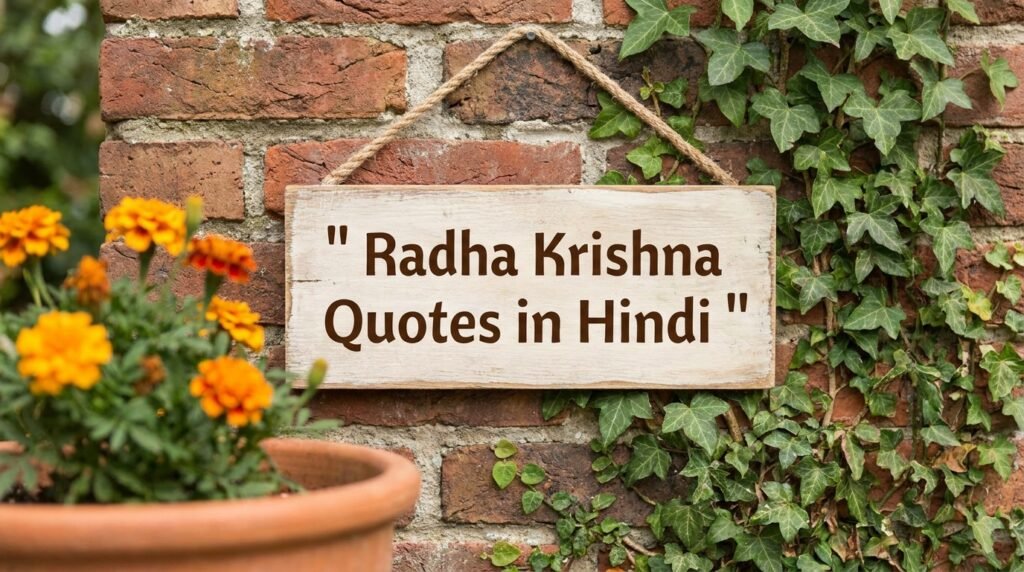 " Radha Krishna
Quotes in Hindi "